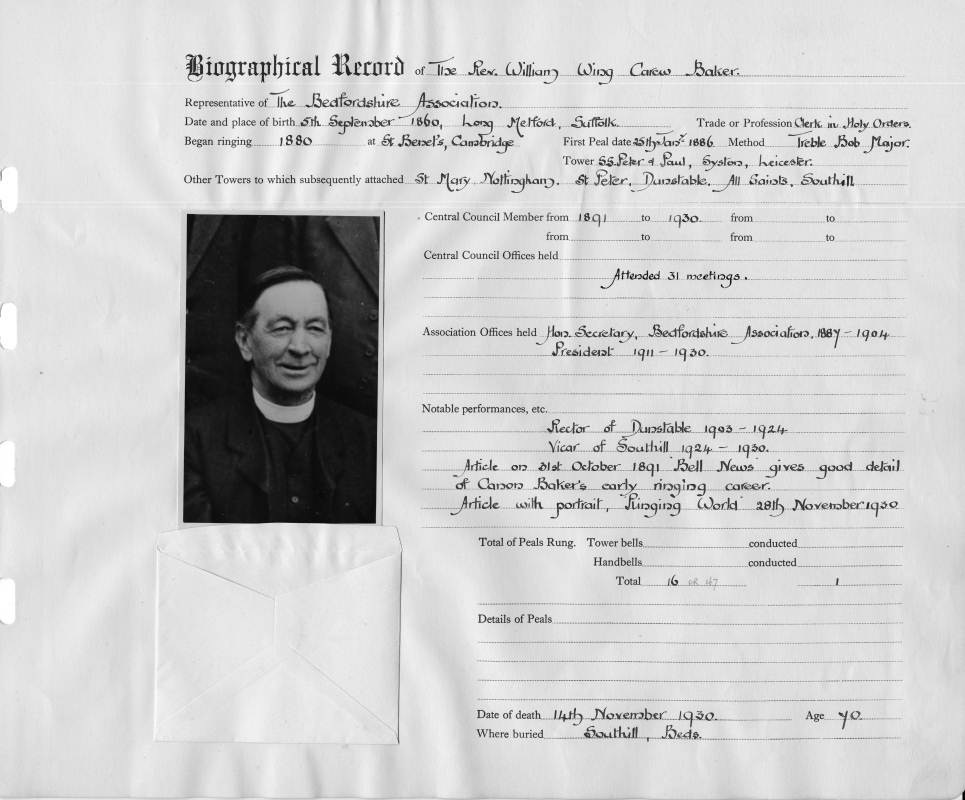 Biographical Record of The Rev. William Wing Carew Baker.
Representative of The Bedfordshire Association.
Date and place of birth 5th September 1860, Long Melford, Suffolk. Trade or Profession Clerk in Holy Orders.
Began ringing 1880 at St Benet's, Cambridge First Peal date 25th Jany 1886 Method Treble Bob Major.
Tower S.S. Peter & Paul, Syston, Leicester.
Other Towers to which subsequently attached St Mary Nottingham. St Peter, Dunstable. All Saints, Southill
Central Council Member from 1891 to 1930. from to
from to from to
Central Council Offices held
Attended 31 meetings.
Association Offices held Hon. Secretary, Bedfordshire Association, 1887 - 1904
President 1911 - 1930.
Notable performances, etc.
Rector of Dunstable 1903 - 1924
Vicar of Southill 1924 - 1930.
Article on 31st October 1891 Bell News gives good detail
of Canon Baker's early ringing career.
Article with portrait, Ringing World 28th November 1930
Total of Peals Rung. Tower bells conducted
Handbells conducted
Total 16 OR 17 1
Details of Peals
Date of death 14th November 1930. Age 70.
Where buried Southill, Beds.